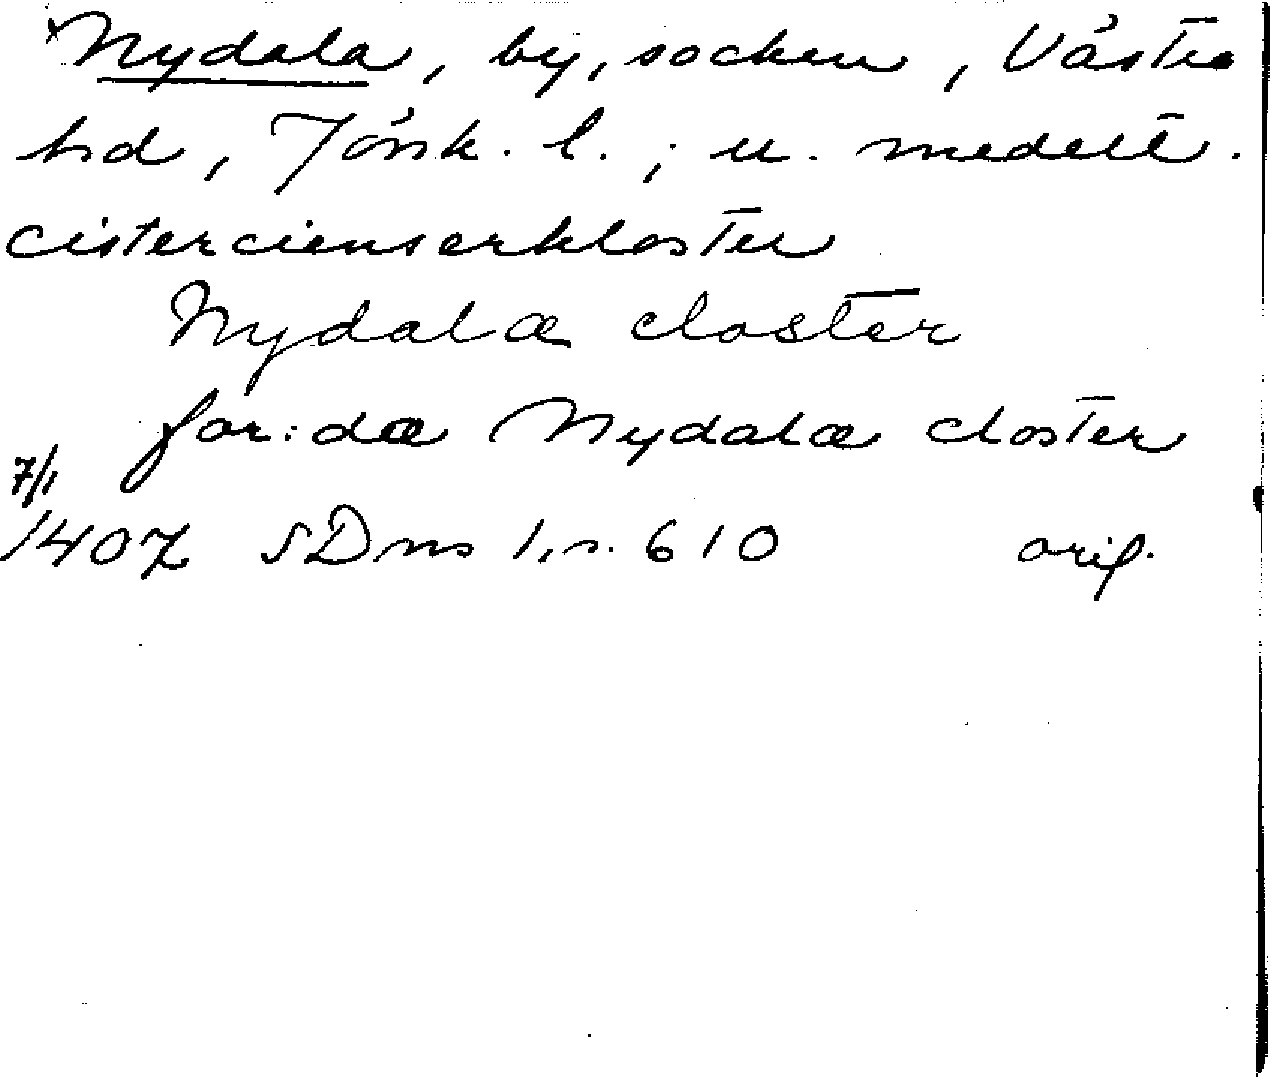 Nydala, by, socken, Västra
hd, Jönk. l.; u. medelt.
cistercienserkloster
Nydalæ closter
for:dæ Nydalæ closter
7/1
1407 SDns 1, n. 610 orig.